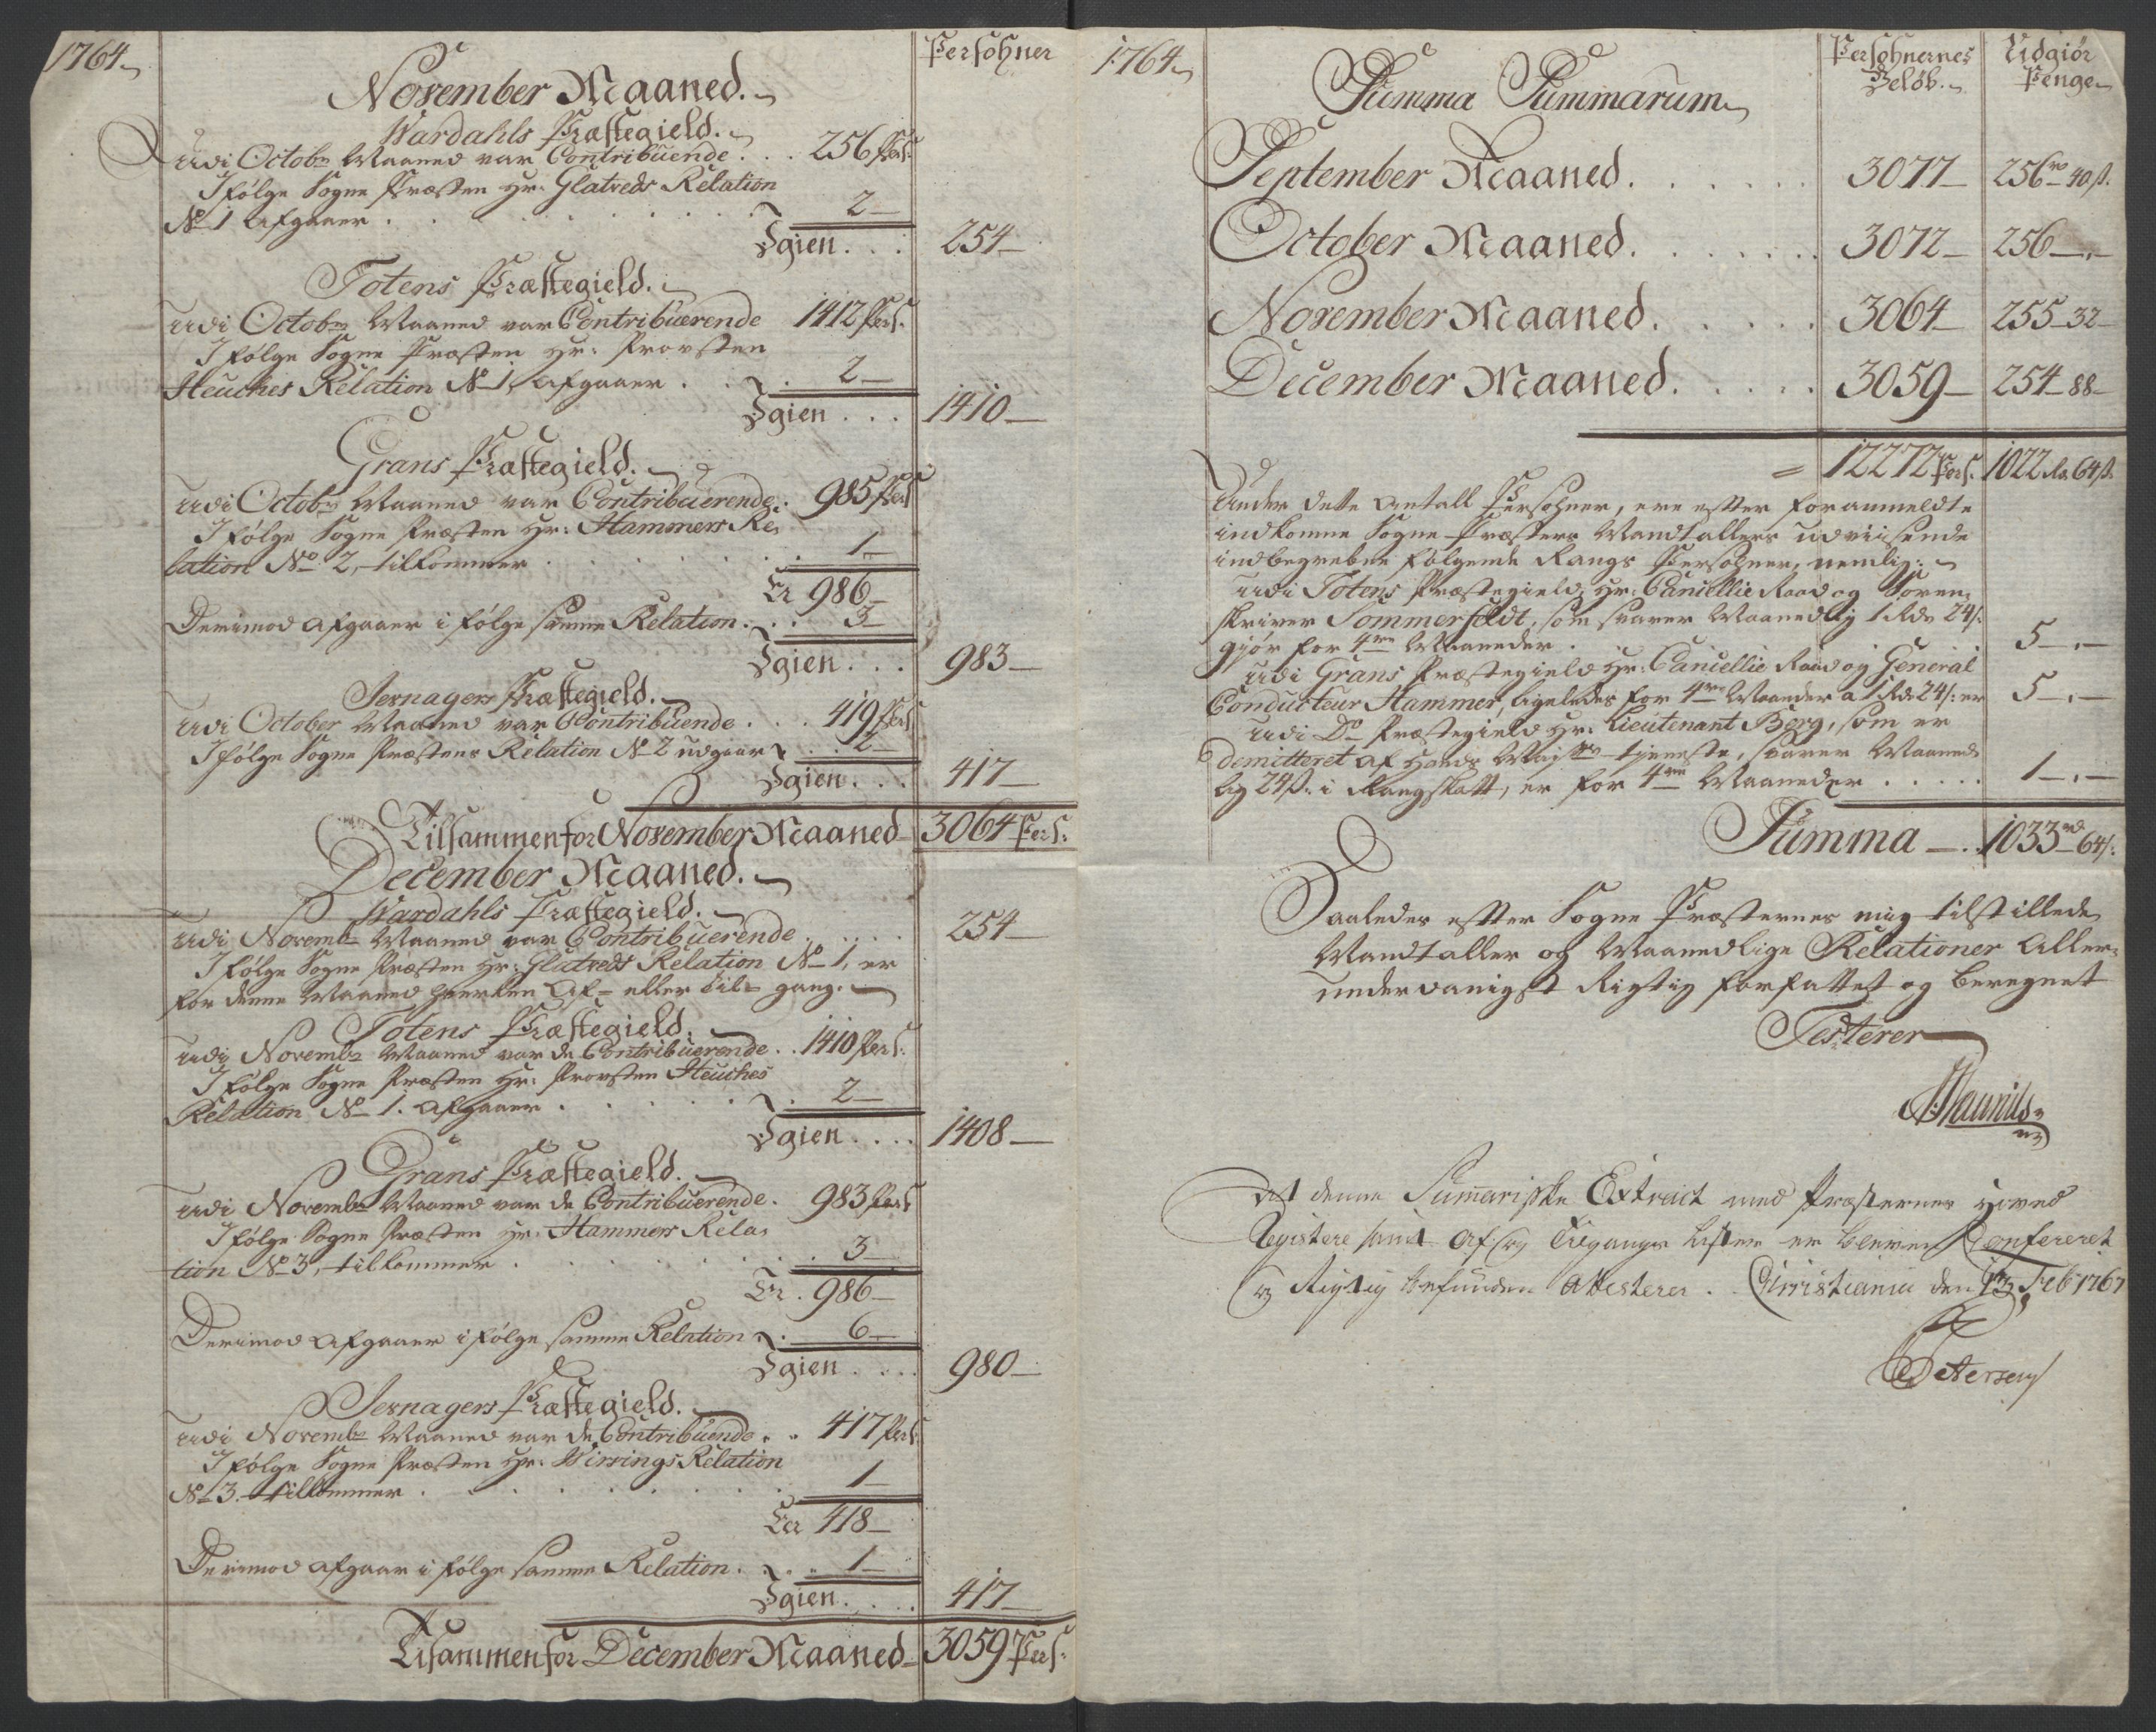 1764
Persohner
November Maaned.
Wardahls Præstegield.
Udi Octobr Maaned var Contribuende . . . 256 Pers:
Ifølge Sogne Præsten Hr: Glatveds Relation
No 1 afgaaer . . . 2
Igien . . . 254
Totens Præstegield.
Udi Octobr Maaned var Contribuerende 1412 Pers:
Ifølge Sogne Præsten Hr: Provsten
Heuches Relation No 1, afgaaer . . . 2
Igien . . . 1410
Grans Præstegield.
Udi Octobr Maaned var Contribuerende . 985 Pers
Ifølge Sogne Præsten Hr: Hammers Re-
lation No 2, tilkommer . . . 1
Er 986
Derimod afgaaer i følge samme Relation . . . 3
Igien . . . 983
Jevnagers Præstegield.
Udi October Maaned var Contribuende . . . 419 Pers
Ifølge Sogne Præstens Relation No 2 udgaar . . 2
Igien . . . 417
Tilsammen for November Maaned 3064 Pers:
December Maaned.
Wardahls Præstegield.
Udi Novembr Maaned var Contribuerende . . . . 254
Ifølge Sogne Præsten Hr: Glatveds Relation No 1, er
for denne Maaned hverken Af- eller Til- gang.
Totens Præstegield.
Udi Novembr Maaned var de Contribuerende . . 1410 Pers:
Ifølge Sogne Præsten Hr: Provsten Heuches
Relation No 1. afgaaer . . . 2
Igien . . . . 1408
Grans Præstegield.
Udi Novembr Maaned var de Contribuerende . 983 Pers
Ifølge Sogne Præsten Hr. Hammers Rela-
tion No 3, tilkommer . . . 3
Er . 986
Derimod afgaaer i følge samme Relation . . 6
Igien . . . . 980
Jevnagers Præstegield.
Udi Novembr Maaned var de Contribuende . . 417 Pers:
Ifølge Sogne Præsten Hr. Wirrings Relation
No 3. tilkommer . . . 1
Er 418
Derimod afgaar i følge samme Relation . . . 1
Igien . . . . 417
Tilsammen for December Maaned 3059 Pers:
1764
Persohnernes Beløb. Udgiør Penge
Summa Summarum
September Maaned . . . 3077 256 rd 40 s.
October Maaned . . . 3072 256 - . -
November Maaned . . . 3064 255 - 32
December Maaned . . . 3059 254 - 88
= 12272 Pers: 1022 Rd 64 s.
Under dette Antall Persohner, ere efter foranmeldte
indkomne Sogne Præsters Mandtallers udviisende
indbegreben følgende Rangs Persohner, nemlig:
Udi Totens Præstegield, Hr: Cancellie Raad og Soren-
skriver Sommerfeldt, som svarer Maanedlig 1 Rd 24 s:
giør for 4re Maaneder . 5 - . -
Udi Grans Præstegield Hr: Cancellie Raad og General
Conducteur Hammer, ligeledes for 4re Maaneder a 1 Rd 24 s: er 5 - . -
Udi Do Præstegield Hr. Lieutenant Berg, som er
demitteret af Hans Mayts tjeneste, svarer Maaned-
lig 24 s. i Rangskatt, er for 4re Maaneder . . . . . 1 - . -
Summa - . . 1033 rd 64 s:
Saaledes efter Sogne Præsternes mig tilstillede
Mandtaller og Maanedlige Relationer Aller-
underdanigst Rigtig forfattet og beregnet
Testerer
At denne Summariske Extract med Præsternes Hoved
Registere samt Af- og Tilgangs Lister er bleven Confereret
og Rigtig befunden Attesterer. Christiania den 13 Feb 1767
Petersen